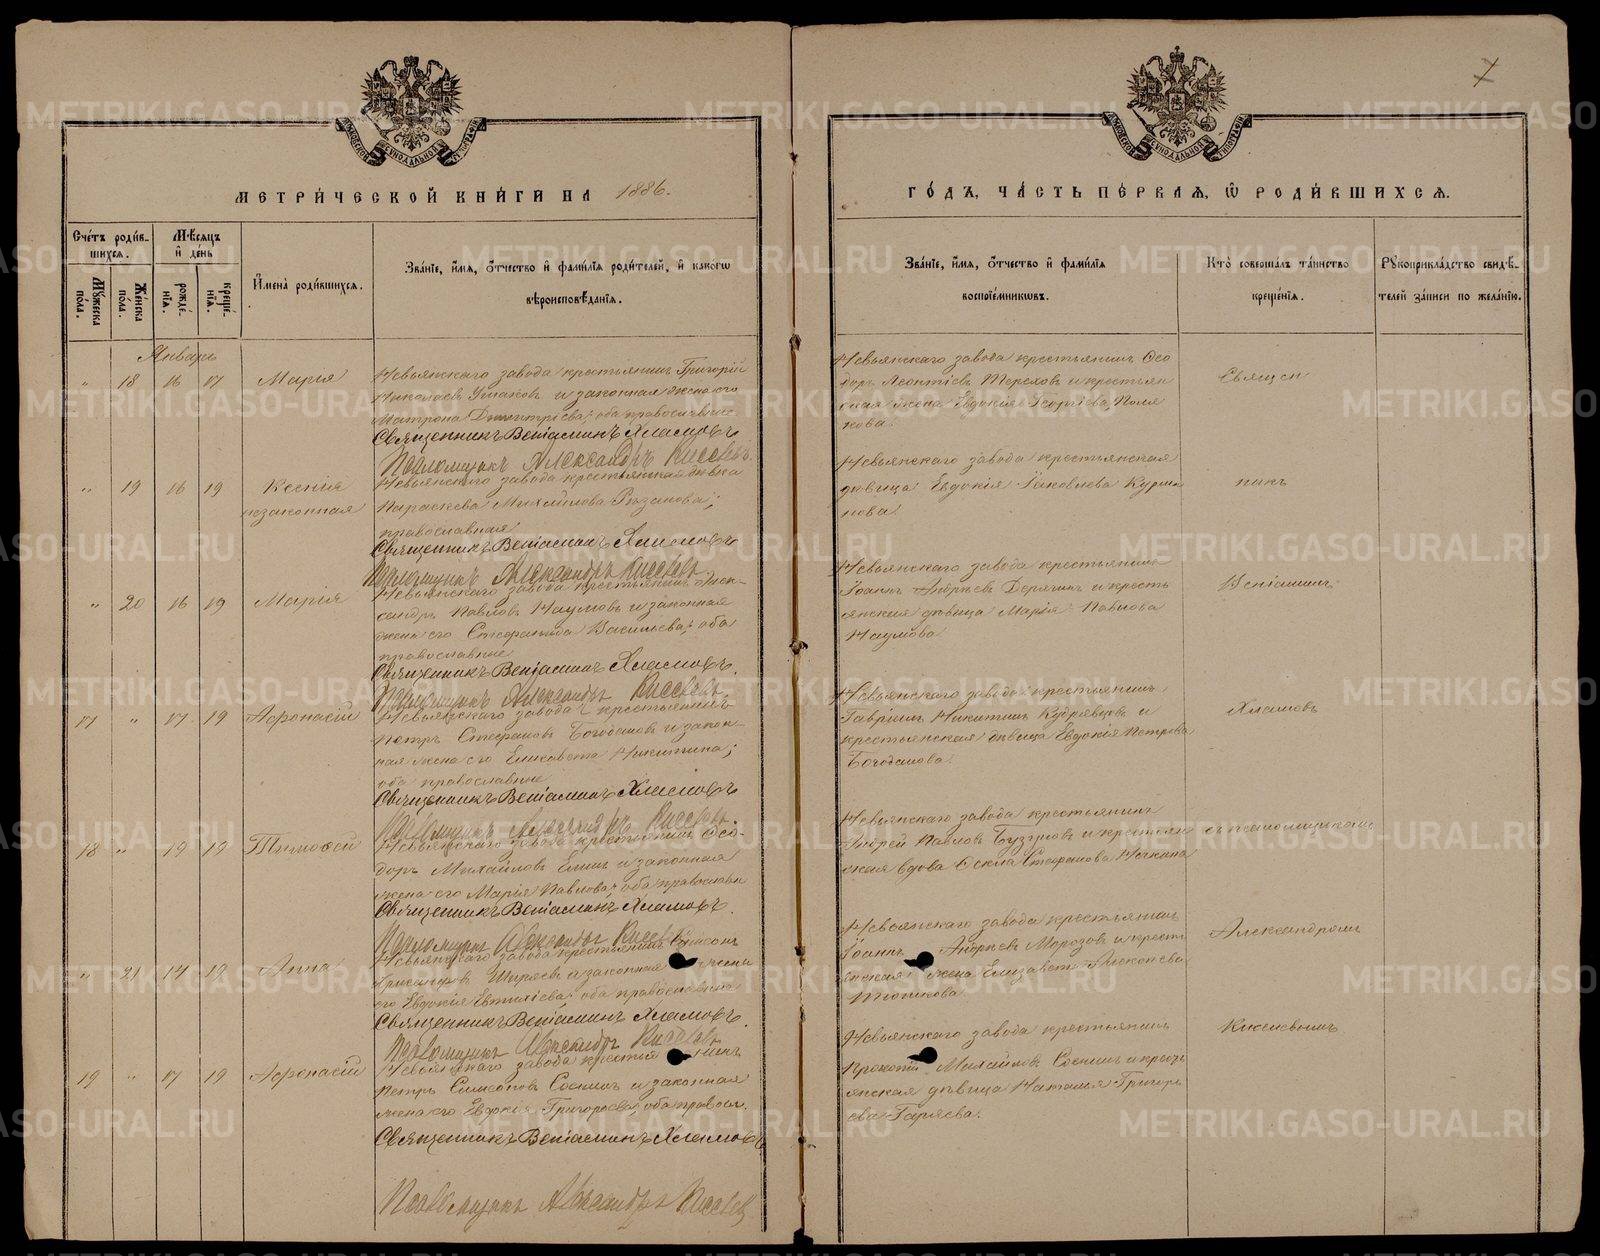 7
МЕТРИЧЕСКОЙ КНИГИ НА 1886.
ГОДЪ, ЧАСТЬ ПЕРВАЯ, Ѡ РОДИВШИХСЯ.
Счетъ родив-
шихся.
Мѣсяцъ
и день
Мужеска пола.
Женска пола.
рожде-
нія.
креще-
нія.
Имена родившихся.
Званіе, имя, отчество и фамилія родителей, и какогѡ
вѣроисповѣданія.
Званіе, имя, отчество и фамилія
воспріемниковъ.
Кто совершалъ таинство
крещенія.
Рукоприкладство свидѣ-
телей записи по желанію.
Январь
" 18 16 17 Марія
Невьянскаго завода крестьянинъ Григорій
Николаевъ Ушаковъ и законная жена его
Матрона Димитріева; оба православные
Священникъ Веніаминъ Хламовъ
Псаломщикъ Александръ Киселевъ
Невьянскаго завода крестьянинъ Ѳео
доръ Леонтіевъ Тереховъ и крестьян
ская жена Евдокія Георгіева Поля
кова.
Священ
" 19 16 19 Ксенія
незаконная
Невьянскаго завода крестьянская дѣвка
Параскева Михайлова Рязанова;
православная
Священникъ Веніаминъ Хламовъ
Псаломщикъ Александръ Киселевъ
Невьянскаго завода крестьянская
дѣвица Евдокія Іаковлева
никъ
" 20 16 19 Марія
Невьянскаго завода крестьянинъ Алек-
сандръ Павловъ Наумовъ и законная
жена его Стефанида Васильева; оба
православные
Священникъ Веніаминъ Хламовъ
Псаломщикъ Александръ Киселевъ
Невьянскаго завода крестьянинъ
Іоаннъ Андреевъ и кресть
янская дѣвица Марія Павлова
Наумова
Веніаминъ
17 " 17 19 Аѳонасій
Невьянскаго завода крестьянинъ
Петръ Стефановъ Богодановъ и закон-
ная жена его Елисавета Никитина;
оба православные
Священникъ Веніаминъ Хламовъ
Псаломщикъ Александръ Киселевъ
Невьянскаго завода крестьянинъ
Гавріилъ Никитинъ Кудрявцовъ и
крестьянская дѣвица Евдокія Петрова
Богоданова.
Хламовъ
18 " 19 19 Тимоѳей
Невьянскаго завода крестьянинъ Ѳео-
доръ Михайловъ и законная
жена его Марія Павлова; оба православн
Священникъ Веніаминъ Хламовъ.
Псаломщикъ Александръ Киселевъ
Невьянскаго завода крестьянинъ
Андрей Павловъ и крестьян
ская вдова Ѳекла Стефанова
съ псаломщикомъ
" 21 14 19 Анна
Невьянскаго завода крестьянинъ Симеонъ
и законная жена
его Евдокія Евтихіева; оба православные
Священникъ Веніаминъ Хламовъ.
Псаломщикъ Александръ Киселевъ
Невьянскаго завода крестьянинъ
Іоаннъ Андреевъ Морозовъ и крест
янская жена Елизавета Алексѣева
Александромъ
19 " 17 19 Аѳонасій
Невьянскаго завода крестьянинъ
Петръ Симеоновъ Сосминъ и законная
жена его Евдокія Григорьева; оба правосл.
Священникъ Веніаминъ Хламовъ
Псаломщикъ Александръ Киселевъ
Невьянскаго завода крестьянинъ
Прокопій Михайловъ Сосминъ и крест
янская дѣвица Наталья Григорь
ева Гаряева.
Киселевымъ
METRIKI.GASO-URAL.RU